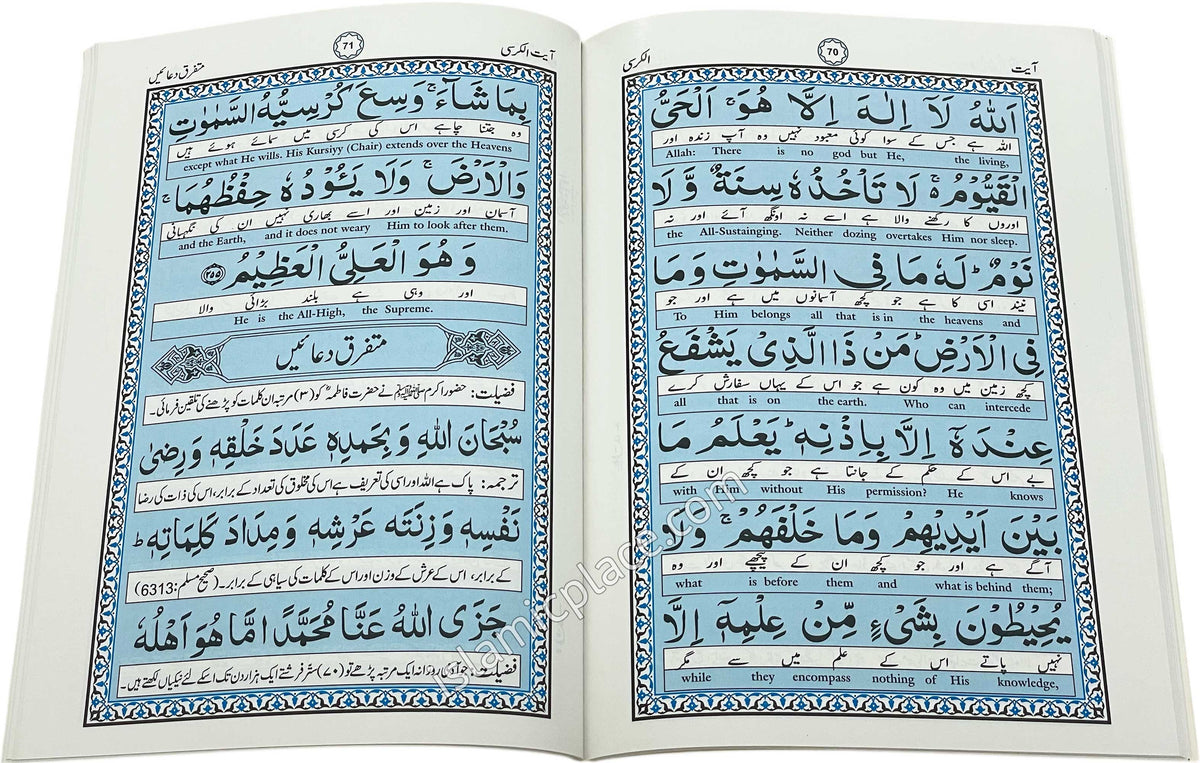 آیت
70
الکرسی
اَللّٰهُ لَآ اِلٰهَ اِلَّا هُوَ ۚ اَلْحَیُّ
اللہ ہے جس کے سوا کوئی معبود نہیں وہ آپ زندہ اور
Allah: There is no god but He, the living,
الْقَیُّوْمُ ۚ۬ لَا تَاْخُذُهٗ سِنَةٌ وَّ لَا
اوروں کا رکھنے والا ہے اسے نہ اونگھ آئے اور نہ
the All-Sustainging. Neither dozing overtakes Him nor sleep.
نَوْمٌ ؕ لَهٗ مَا فِی السَّمٰوٰتِ وَ مَا
نیند اسی کا ہے جو کچھ آسمانوں میں ہے اور جو
To Him belongs all that is in the heavens and
فِی الْاَرْضِ ؕ مَنْ ذَا الَّذِیْ یَشْفَعُ
کچھ زمین میں وہ کون ہے جو اس کے یہاں سفارش کرے
all that is on the earth. Who can intercede
عِنْدَهٗۤ اِلَّا بِاِذْنِهٖ ؕ یَعْلَمُ مَا
بے اس کے حکم کے جانتا ہے جو کچھ ان کے
with Him without His permission? He knows
بَیْنَ اَیْدِیْهِمْ وَمَا خَلْفَهُمْ ۚ وَلَا
آگے ہے اور جو کچھ ان کے پیچھے اور وہ
what is before them and what is behind them;
یُحِیْطُوْنَ بِشَیْءٍ مِّنْ عِلْمِهٖۤ اِلَّا
نہیں پاتے اس کے علم میں سے مگر
while they encompass nothing of His knowledge,
آیت الکرسی
71
متفرق دعائیں
بِمَا شَآءَ ۚ وَسِعَ كُرْسِیُّهُ السَّمٰوٰتِ
وہ جتنا چاہے اس کی کرسی میں سمائے ہوئے ہیں
except what He wills. His Kursiyy (Chair) extends over the Heavens
وَالْاَرْضَ ۚ وَلَا یَـُٔوْدُهٗ حِفْظُهُمَا ۚ
آسمان اور زمین اور اسے بھاری نہیں ان کی نگہبانی
and the Earth, and it does not weary Him to look after them.
وَ هُوَ الْعَلِیُّ الْعَظِیْمُ ﴿۲۵۵﴾
اور وہی ہے بلند بڑائی والا
He is the All-High, the Supreme.
متفرق دعائیں
فضیلت: حضور اکرم ﷺ نے حضرت فاطمہؓ کو (۳) مرتبہ ان کلمات کو پڑھنے کی تلقین فرمائی۔
سُبْحَانَ اللّٰهِ وَ بِحَمْدِهٖ عَدَدَ خَلْقِهٖ وَ رِضٰی
ترجمہ: پاک ہے اللہ اور اسی کی تعریف ہے اس کی مخلوق کی تعداد کے برابر، اس کی ذات کی رضا
نَفْسِهٖ وَ زِنَتَه عَرْشِهٖ وَ مِدَادَ كَلِمَاتِهٖ ؕ
کے برابر، اس کے عرش کے وزن اور اس کے کلمات کی سیاہی کے برابر۔ (صحیح مسلم: 6313)
جَزَی اللّٰهُ عَنَّا مُحَمَّدًا مَّا هُوَ اَهْلُهٗ
فضیلت: جو آدمی روزانہ ایک مرتبہ پڑھے تو (۷۰) ستر فرشتے ایک ہزار دن تک اسکے لئے نیکیاں لکھتے ہیں۔
islamicplace.com